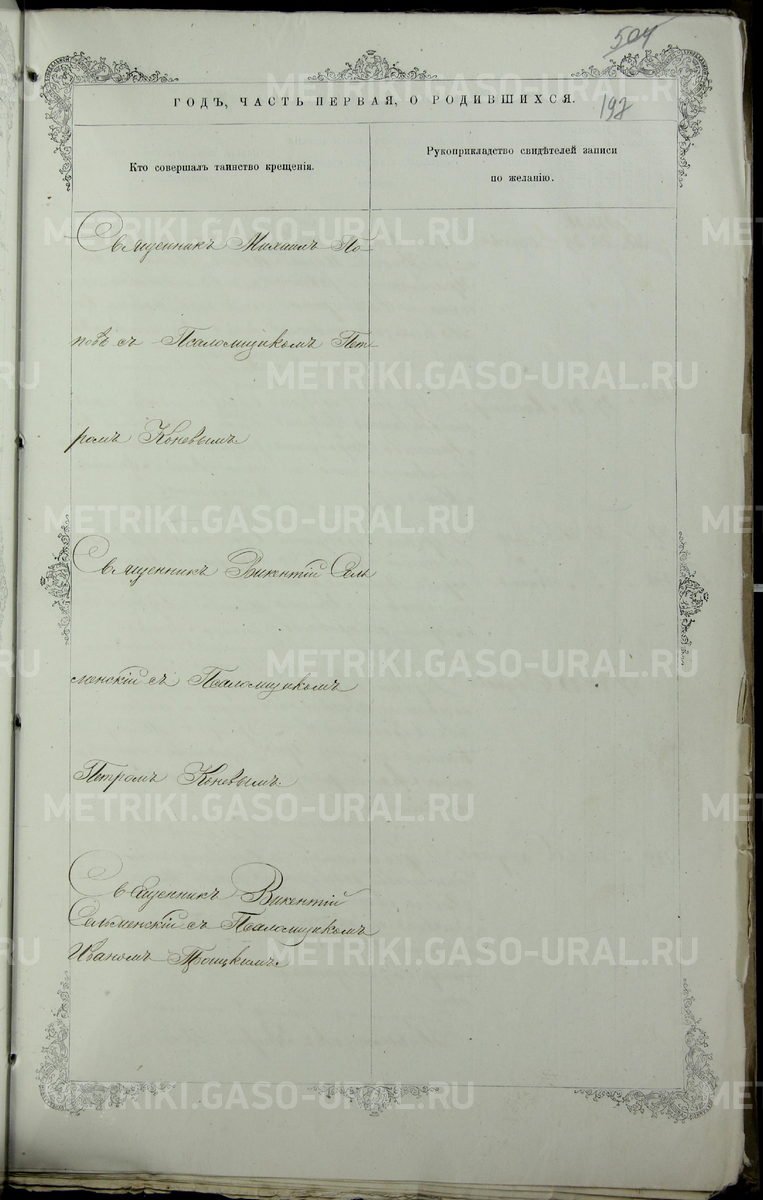 504
ГОДЪ, ЧАСТЬ ПЕРВАЯ, О РОДИВШИХСЯ.
197
Кто совершалъ таинство крещенія.
Рукоприкладство свидѣтелей записи
по желанію.
Священникъ Михаилъ По-
повъ съ Псаломщикомъ Пет-
ромъ Коневымъ.
Священникъ Викентій Сель
менскій съ Псаломщикомъ
Петромъ Коневымъ.
Священникъ Викентій
Сельменскій съ Псаломщикомъ
Иваномъ Троицкимъ.
METRIKI.GASO-URAL.RU